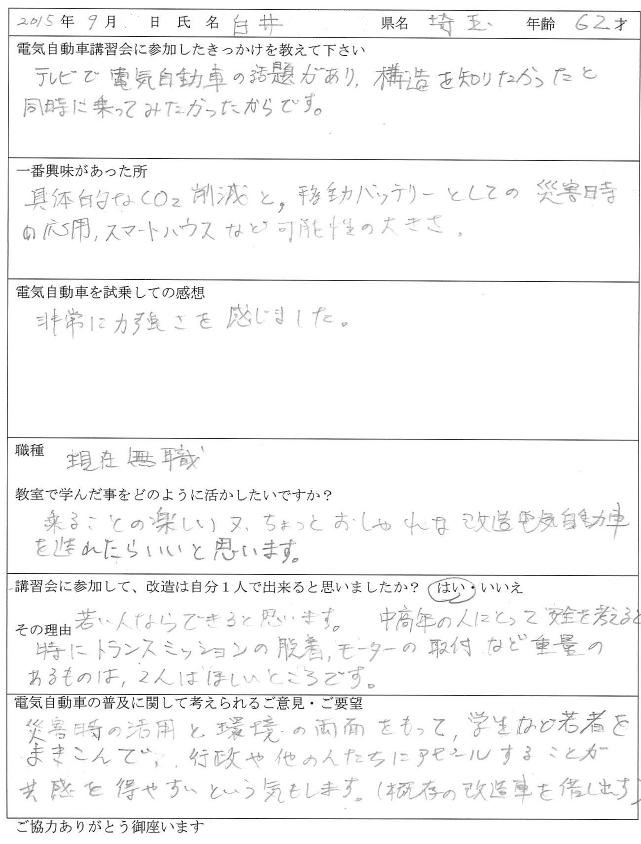 2015年 9月 日 氏 名 白井 県名 埼玉 年齢 62才
電気自動車講習会に参加したきっかけを教えて下さい
テレビで電気自動車の話題があり、構造を知りたかったと
同時に乗ってみたかったからです。
一番興味があった所
具体的なCO2削減と,移動バッテリーとしての災害時
の応用,スマートハウスなど可能性の大きさ.
電気自動車を試乗しての感想
非常に力強さを感じました。
職種 現在無職
教室で学んだ事をどのように活かしたいですか?
乗ることの楽しい又、ちょっとおしゃれな改造電気自動車
を造れたらいいと思います。
講習会に参加して、改造は自分1人で出来ると思いましたか? はい・いいえ
その理由 若い人ならできると思います。 中高年の人にとって安全を考えると
特にトランスミッションの脱着,モーターの取付など重量の
あるものは,2人はほしいところです。
電気自動車の普及に関して考えられるご意見・ご要望
災害時の活用と環境の両面をもって,学生など若者を
まきこんで,行政や他の人たちにアピールすることが
共感を得やすいという気もします。(既存の改造車を借し出す)
ご協力ありがとう御座います